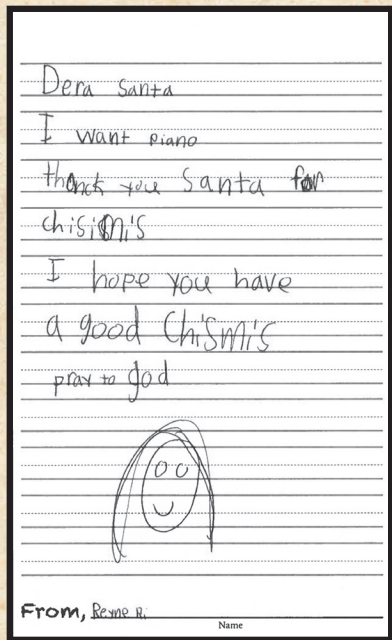 Dera Santa
I want piano
thanck you Santa for
chisimi's
I hope you have
a good Chismis
pray to god
From, Reyne R.
Name